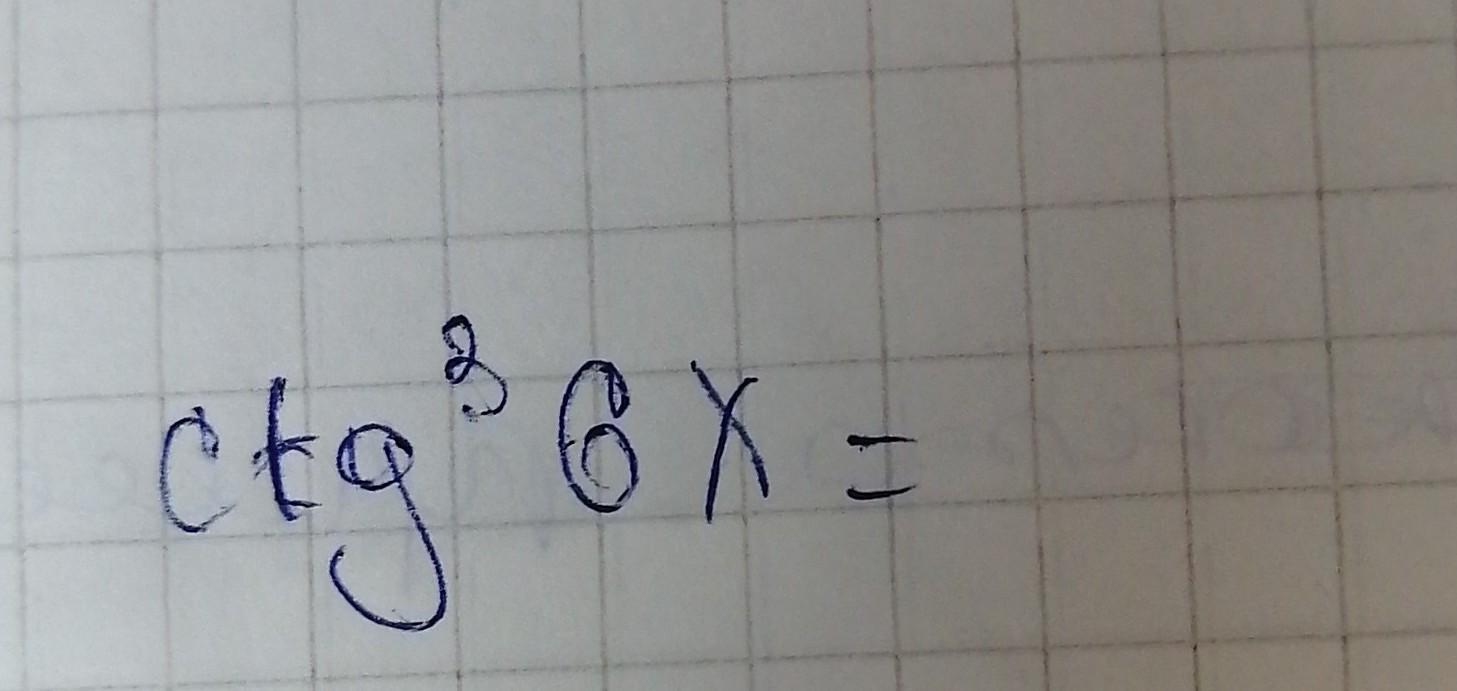 ctg³ 6x =